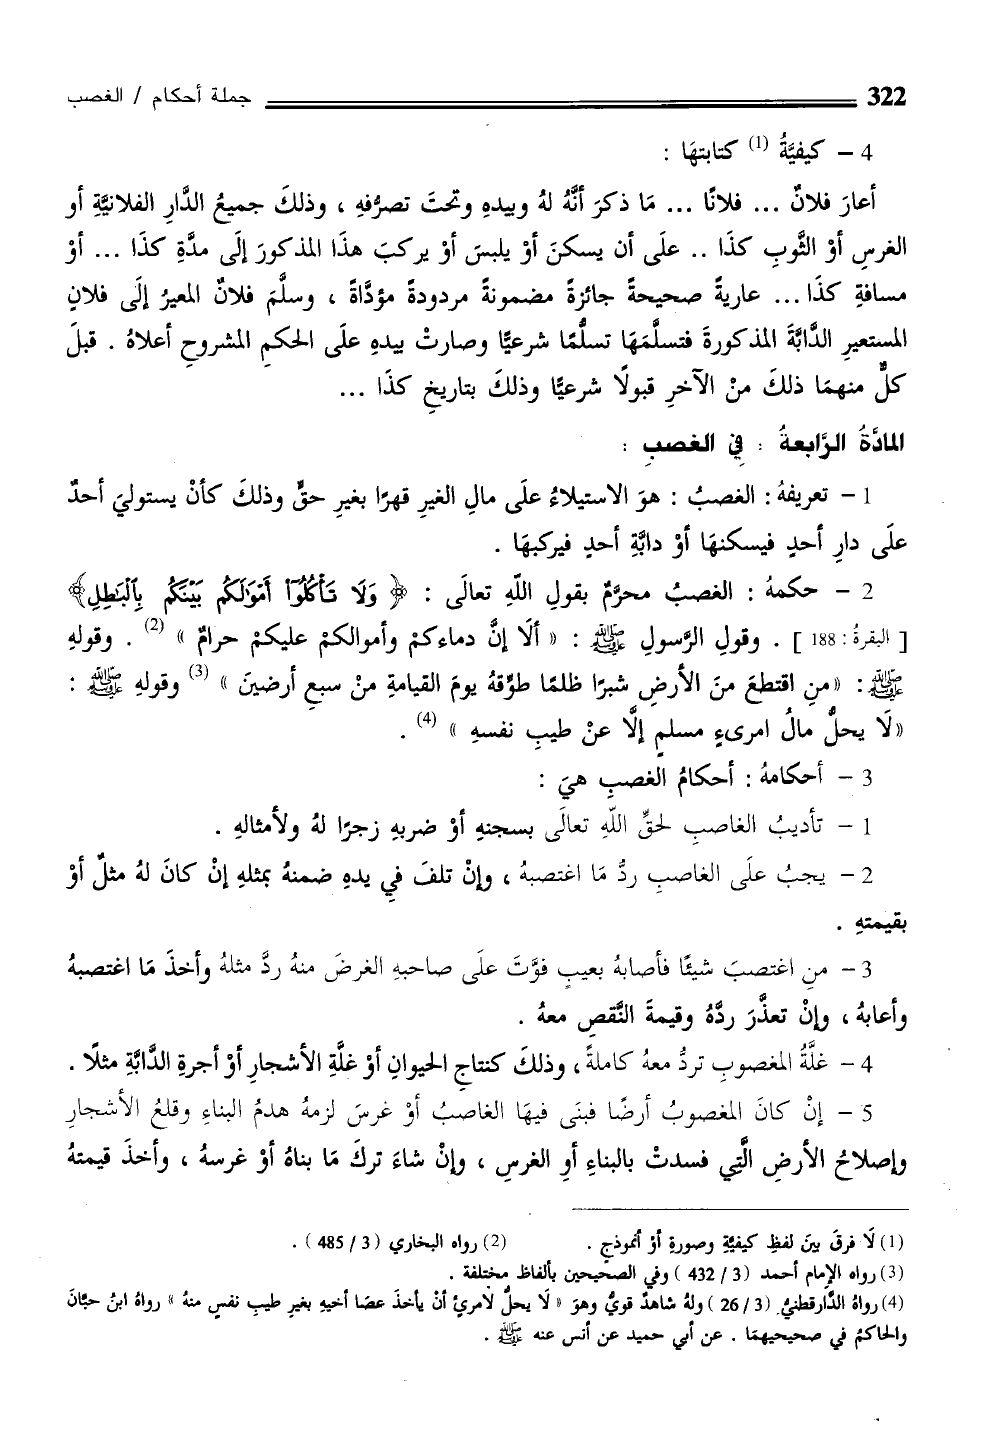 322 جملة أحكام / الغصب
4 – كيفيَّةُ (1) كتابتهَا :
أعارَ فلانٌ ... فلانًا ... مَا ذكرَ أنَّهُ لهُ وبيدهِ وتحتَ تصرُّفهِ ، وذلكَ جميعُ الدَّارِ الفلانيَّةِ أو
الغرسِ أوْ الثَّوبِ كذَا .. علَى أن يسكنَ أوْ يلبسَ أوْ يركبَ هذَا المذكورَ إلَى مدَّةِ كذَا ... أوْ
مسافةِ كذَا ... عاريةً صحيحةً جائزةً مضمونةً مردودةً مؤدَّاةً ، وسلَّمَ فلانٌ المعيرُ إلَى فلانِ
المستعيرِ الدَّابَّةَ المذكورةَ فتسلَّمَهَا تسلُّمًا شرعيًّا وصارتْ بيدهِ علَى الحكمِ المشروحِ أعلاهُ . قبلَ
كلٌّ منهمَا ذلكَ منْ الآخرِ قبولًا شرعيًّا وذلكَ بتاريخِ كذَا ...
المادَّةُ الرَّابعةُ : فِي الغصبِ :
1 – تعريفهُ : الغصبُ : هوَ الاستيلاءُ علَى مالِ الغيرِ قهرًا بغيرِ حقٍّ وذلكَ كأنْ يستوليَ أحدٌ
علَى دارِ أحدٍ فيسكنهَا أوْ دابَّةِ أحدٍ فيركبهَا .
2 – حكمهُ : الغصبُ محرَّمٌ بقولِ اللَّهِ تعالَى : ﴿ وَلَا تَأْكُلُوٓا۟ أَمْوَٰلَكُم بَيْنَكُم بِٱلْبَٰطِلِ ﴾
[ البقرةُ : 188 ] . وقولِ الرَّسولِ ﷺ : « ألَا إنَّ دماءكمْ وأموالكمْ عليكمْ حرامٌ » (2) . وقولهِ
ﷺ : «منِ اقتطعَ منَ الأرضِ شبرًا ظلمًا طوِّقهُ يومَ القيامةِ منْ سبعِ أرضينَ » (3) وقولهِ ﷺ :
«لَا يحلُّ مالُ امرىءٍ مسلمٍ إلَّا عنْ طيبِ نفسهِ » (4) .
3 – أحكامهُ : أحكامُ الغصبِ هيَ :
1 – تأديبُ الغاصبِ لحقِّ اللَّهِ تعالَى بسجنهِ أوْ ضربهِ زجرًا لهُ ولأمثالهِ .
2 – يجبُ علَى الغاصبِ ردُّ مَا اغتصبهُ ، وإنْ تلفَ فِي يدهِ ضمنهُ بمثلهِ إنْ كانَ لهُ مثلٌ أوْ
بقيمتهِ .
3 – منِ اغتصبَ شيئًا فأصابهُ بعيبٍ فوَّتَ علَى صاحبهِ الغرضَ منهُ ردَّ مثلهُ وأخذَ مَا اغتصبهُ
وأعابهُ ، وإنْ تعذَّرَ ردَّهُ وقيمةَ النَّقصِ معهُ .
4 – غلَّةُ المغصوبِ تردُّ معهُ كاملةً ، وذلكَ كنتاجِ الحيوانِ أوْ غلَّةِ الأشجارِ أوْ أجرةِ الدَّابَّةِ مثلًا .
5 – إنْ كانَ المغصوبُ أرضًا فبنَى فيهَا الغاصبُ أوْ غرسَ لزمهُ هدمُ البناءِ وقلعُ الأشجارِ
وإصلاحُ الأرضِ الَّتِي فسدتْ بالبناءِ أوِ الغرسِ ، وإنْ شاءَ تركَ مَا بناهُ أوْ غرسهُ ، وأخذَ قيمتهُ
(1) لَا فرقَ بينَ لفظِ كيفيَّةٍ وصورةٍ أوْ أنموذجٍ . (2) رواه البخاري (3 / 485 ) .
(3) رواه الإمام أحمد (3 / 432 ) وفي الصحيحين بألفاظ مختلفة .
(4) رواهُ الدَّارقطنيُّ (3 / 26 ) ولهُ شاهدٌ قويٌّ وهوَ « لَا يحلُّ لامرئٍ أنْ يأخذَ عصَا أخيهِ بغيرِ طيبِ نفسٍ منهُ » رواهُ ابنُ حبَّانَ
والحاكمُ في صحيحيهمَا . عن أبي حميد عن أنس عنه ﷺ .